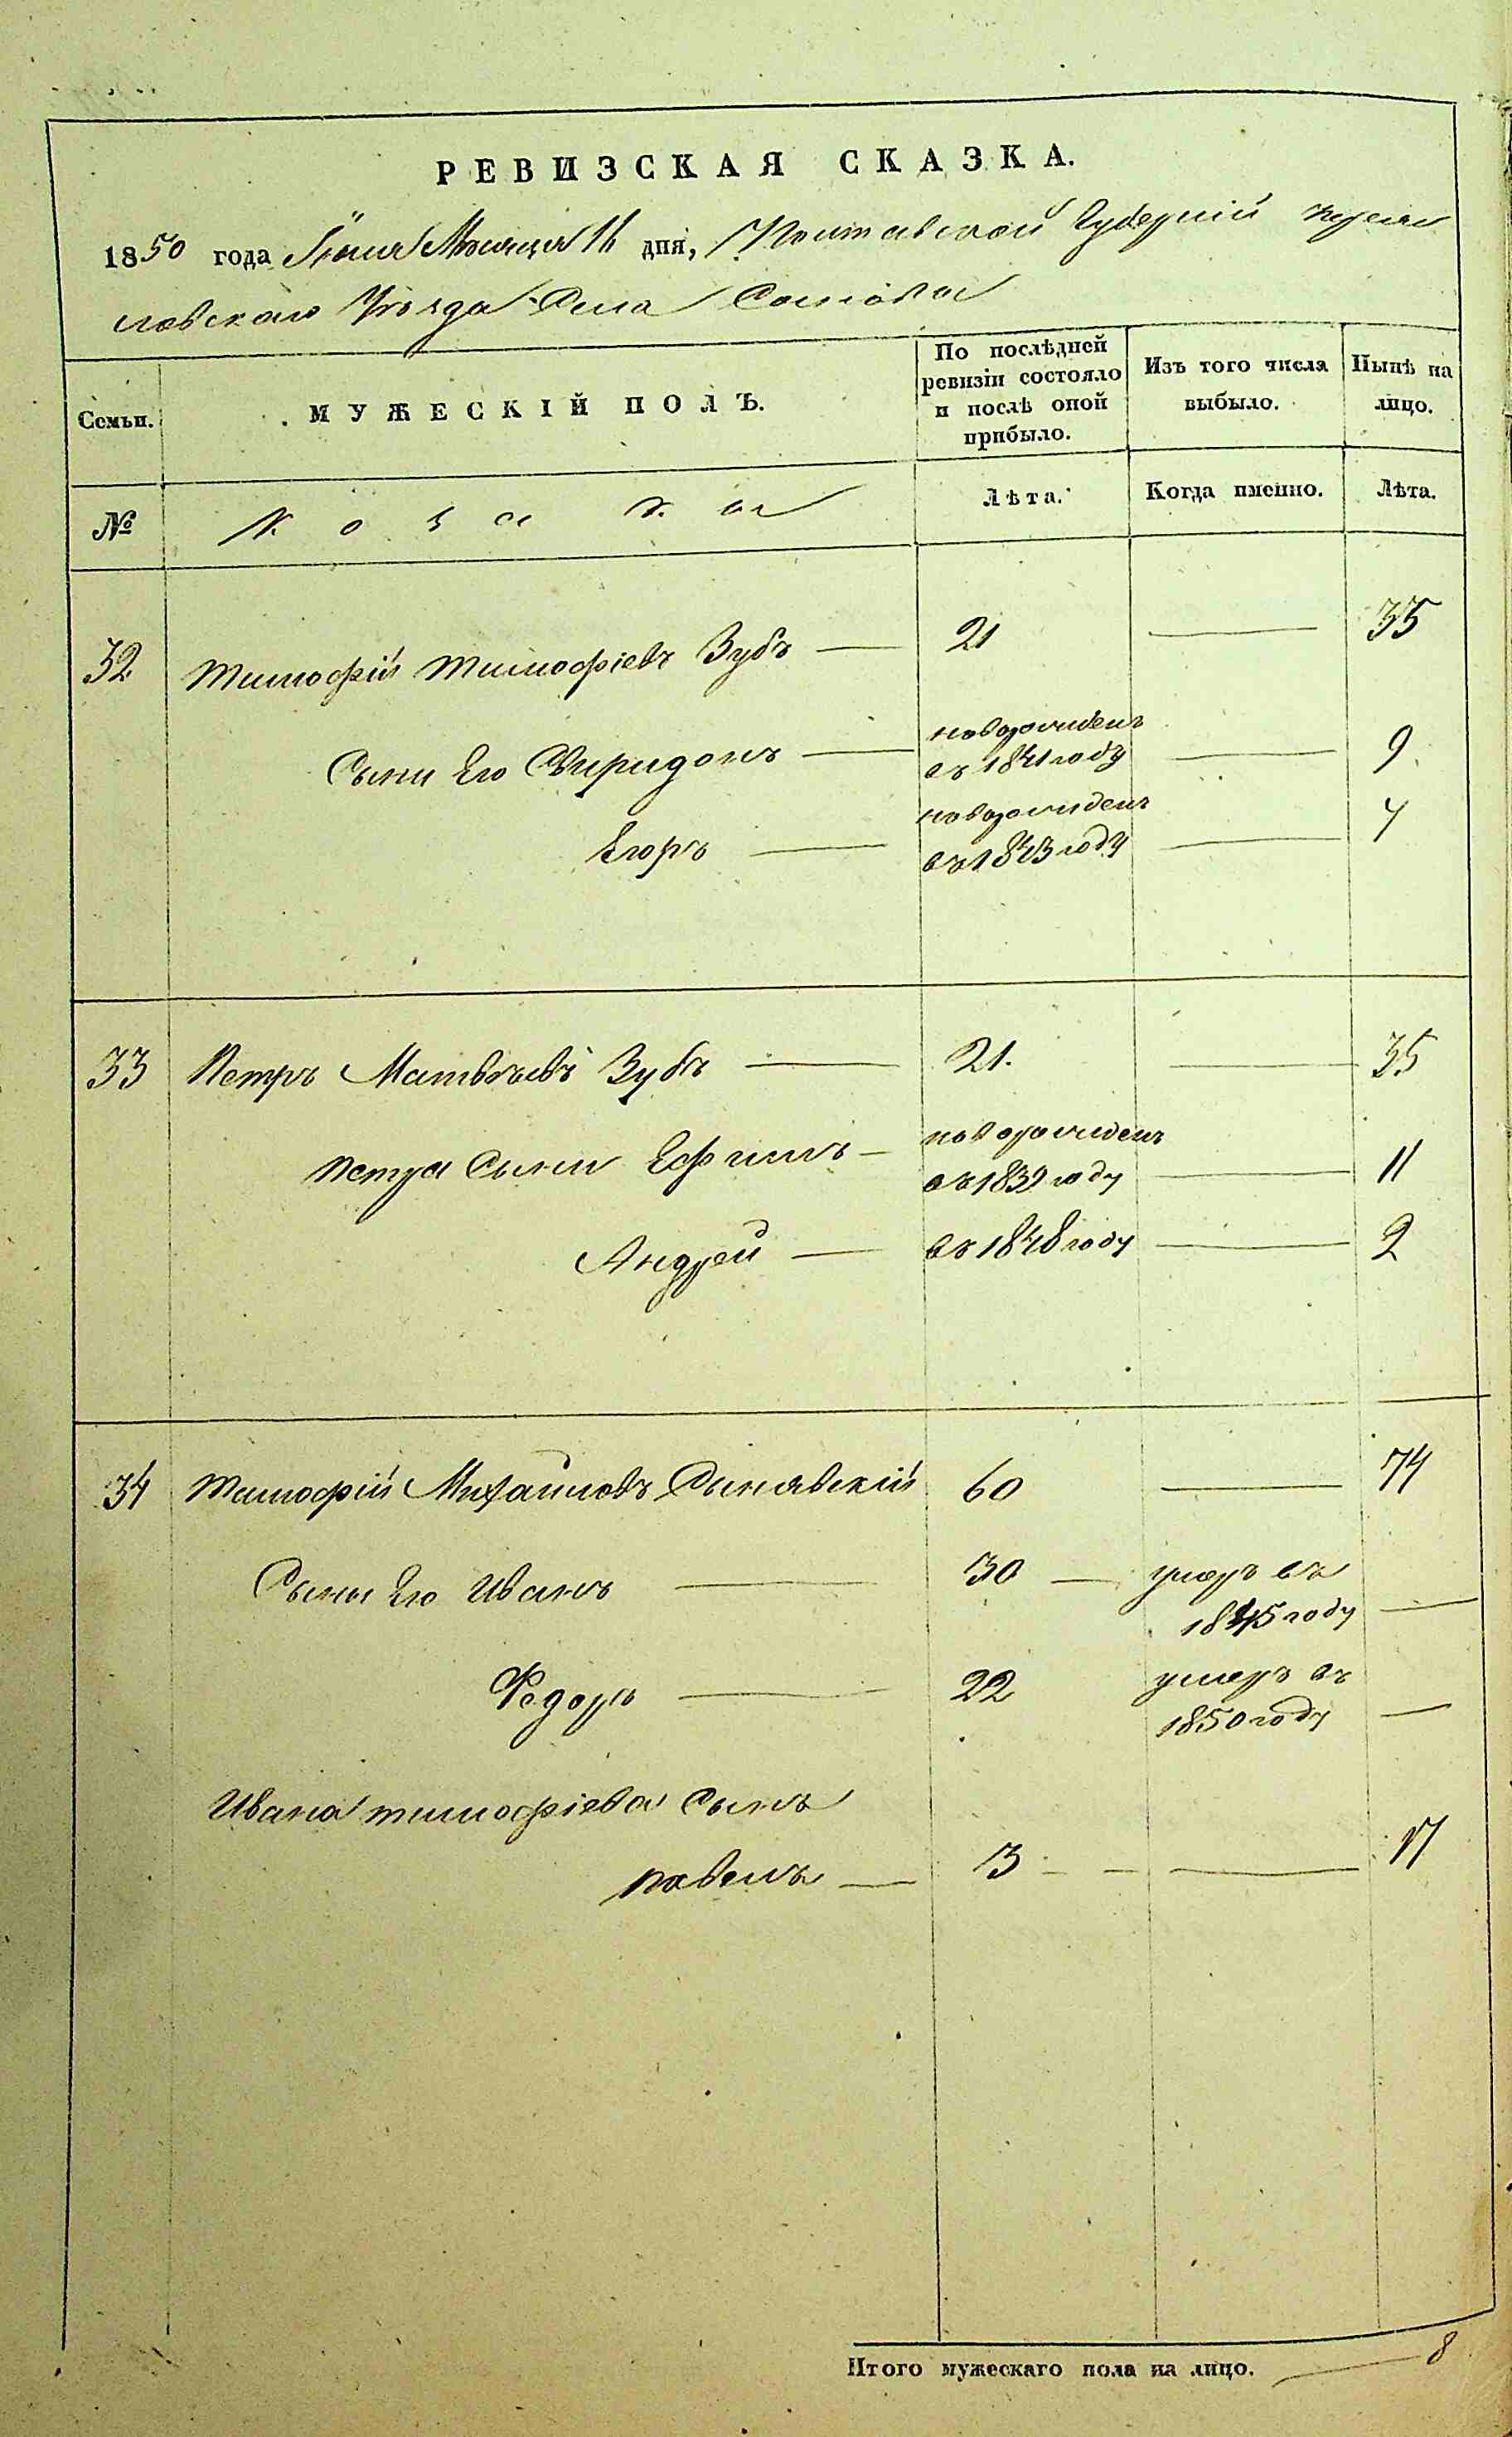 РЕВИЗСКАЯ СКАЗКА.
1850 года Іюня Месяца 16 дня, Полтавской Губерніи переяс
лавского Уѣзда Села Сошова
Семьи.
МУЖЕСКІЙ ПОЛЪ.
По послѣдней
ревизіи состояло
и послѣ оной
прибыло.
Изъ того числа
выбыло.
Нынѣ на
лицо.
№
Козаки
Лѣта.
Когда именно.
Лѣта.
32 Тимофій Тимофіевъ Зубъ — 21 — 35
Сыни Его Спиридонъ — новорожденъ
въ 1841 году — 9
Егоръ — новорожденъ
въ 1843 году — 7
33 Петръ Матвѣевъ Зубъ — 21. — 35
Петра Сыни Ефимъ — новорожденъ
въ 1839 году — 11
Андрей — въ 1848 году — 2
34 Тимофій Михайловъ 60 — 74
Сыни Его Иванъ — 30 — умеръ въ
1845 году —
Федоръ — 22 умеръ въ
1850 году —
Ивана тимофіева Сынъ
павелъ — 3 — — 17
Итого мужескаго пола на лицо. — 8